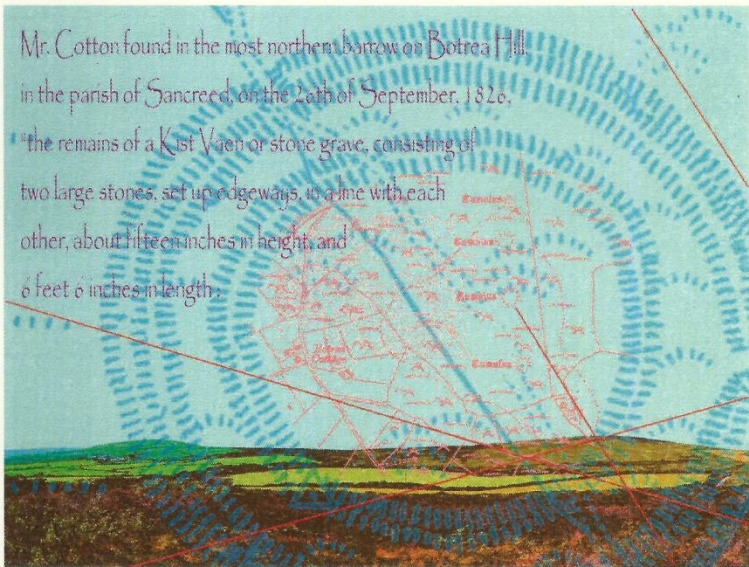 Mr. Cotton found in the most northern barrow on Botrea Hill,
in the parish of Sancreed, on the 26th of September, 1826,
"the remains of a Kist Vaen or stone grave, consisting of
two large stones, set up edgeways, in a line with each
other, about fifteen inches in height, and
6 feet 6 inches in length;
Tumulus
Tumulus
Tumulus
Tumulus